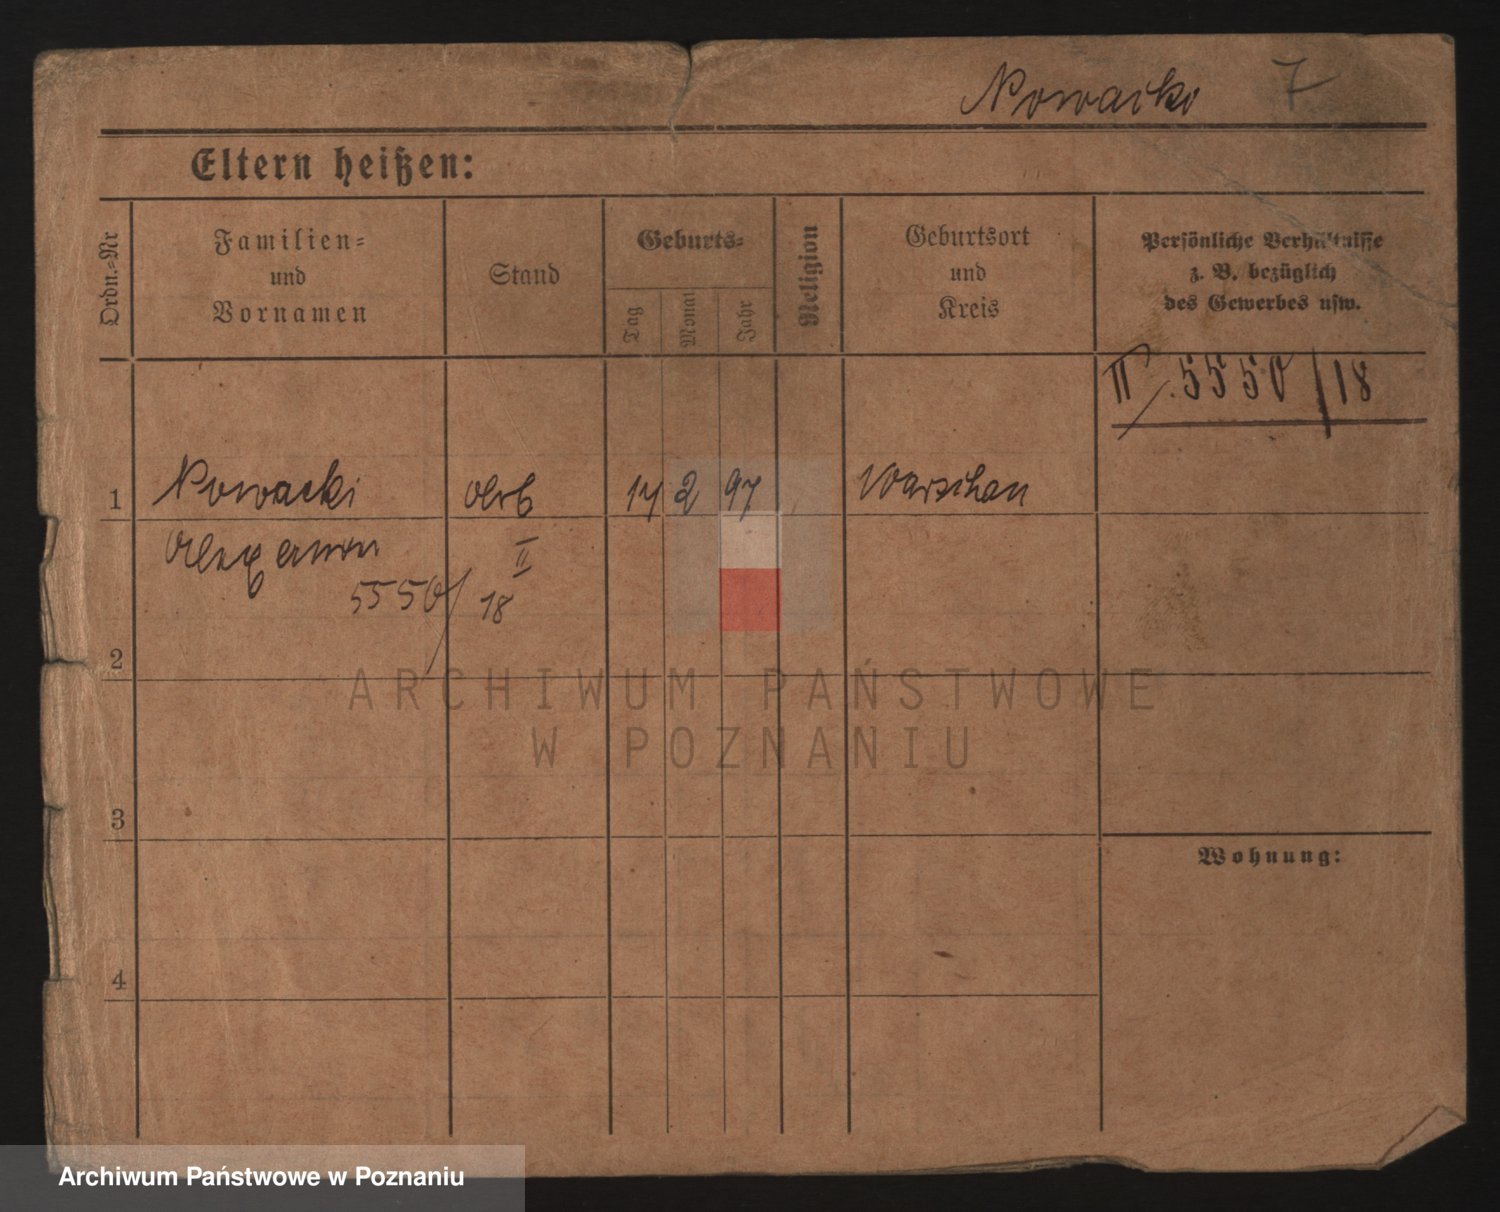 Nowacki 7
Eltern heißen:
Ordn.-Nr
Familien-
und
Vornamen
Stand
Geburts-
Tag
Monat
Jahr
Religion
Geburtsort
und
Kreis
Persönliche Verhältnisse
z. B. bezüglich
des Gewerbes usw.
II/5550/18
1 Nowacki Arb 14 2 97 Warschau
II
5550/18
2
ARCHIWUM PAŃSTWOWE
W POZNANIU
3
Wohnung:
4
Archiwum Państwowe w Poznaniu